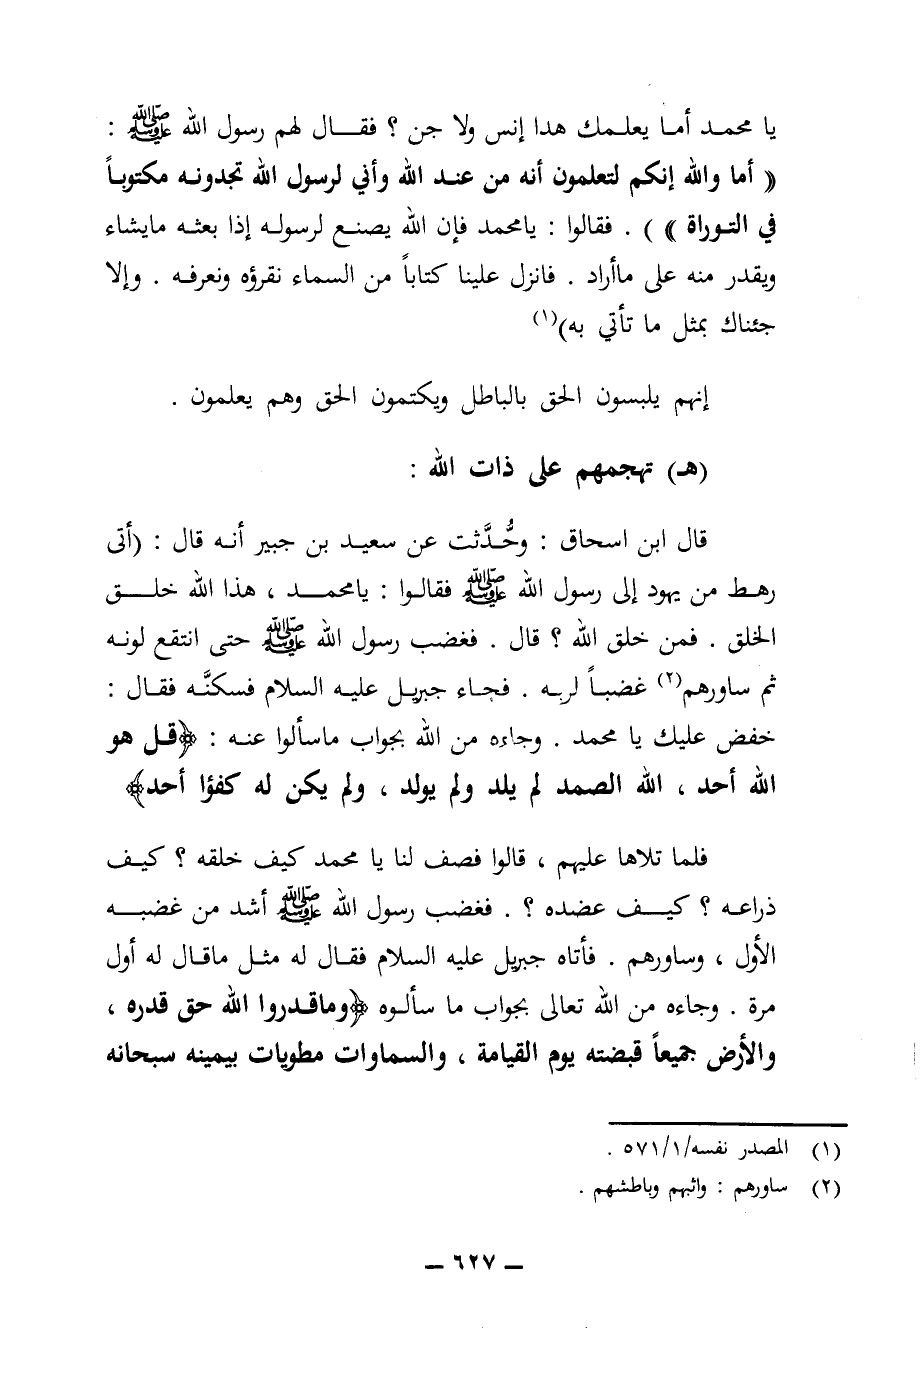 يا محمد أما يعلمك هدا إنس ولا جن ؟ فقال لهم رسول الله ﷺ :
« أما والله إنكم لتعلمون أنه من عند الله وأني لرسول الله تجدونه مكتوباً
في التوراة » ) . فقالوا : يامحمد فإن الله يصنع لرسوله إذا بعثه مايشاء
ويقدر منه على ماأراد . فانزل علينا كتاباً من السماء نقرؤه ونعرفه . وإلا
جئناك بمثل ما تأتي به)(١)
إنهم يلبسون الحق بالباطل ويكتمون الحق وهم يعلمون .
(هـ) تهجمهم على ذات الله :
قال ابن اسحاق : وحُدَّثت عن سعيد بن جبير أنه قال : (أتى
رهط من يهود إلى رسول الله ﷺ فقالوا : يامحمد ، هذا الله خلق
الخلق . فمن خلق الله ؟ قال . فغضب رسول الله ﷺ حتى انتقع لونه
ثم ساورهم(٢) غضباً لربه . فجاء جبريل عليه السلام فسكنَّه فقال :
خفض عليك يا محمد . وجاءه من الله بجواب ماسألوا عنه : ﴿قل هو
الله أحد ، الله الصمد لم يلد ولم يولد ، ولم يكن له كفؤا أحد﴾
فلما تلاها عليهم ، قالوا فصف لنا يا محمد كيف خلقه ؟ كيف
ذراعه ؟ كيف عضده ؟ . فغضب رسول الله ﷺ أشد من غضبه
الأول ، وساورهم . فأتاه جبريل عليه السلام فقال له مثل ماقال له أول
مرة . وجاءه من الله تعالى بجواب ما سألوه ﴿وماقدروا الله حق قدره ،
والأرض جميعاً قبضته يوم القيامة ، والسماوات مطويات بيمينه سبحانه
(١) المصدر نفسه/١/٥٧١ .
(٢) ساورهم : واثبهم وباطشهم .
— ٦٢٧ —